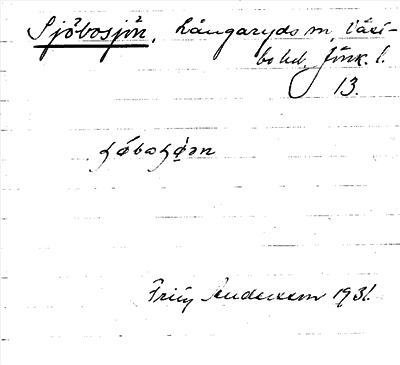 Sjöbosjön, Långaryds sn, Väst-
bo hd. Jönk. l.
13.
Andersson 1931.